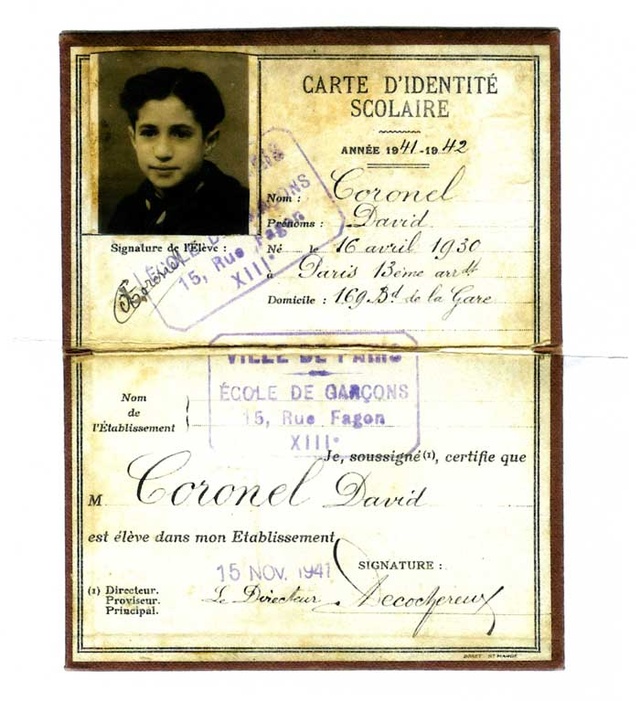 CARTE D'IDENTITÉ
SCOLAIRE
ANNÉE 1941-1942
Nom : Coronel
Prénoms : David
Né le 16 avril 1930
à Paris 13ème arrdt
Domicile : 169 Bd de la Gare
Signature de l'Élève :
Coronel
ÉCOLE DE GARÇONS
15, Rue Fagon
XIIIe
VILLE DE PARIS
ÉCOLE DE GARÇONS
15, Rue Fagon
XIIIe
Nom
de
l'Établissement
Je, soussigné (1), certifie que
M Coronel David
est élève dans mon Etablissement
15 NOV. 1941
SIGNATURE :
(1) Directeur.
Proviseur.
Principal.
Le Directeur